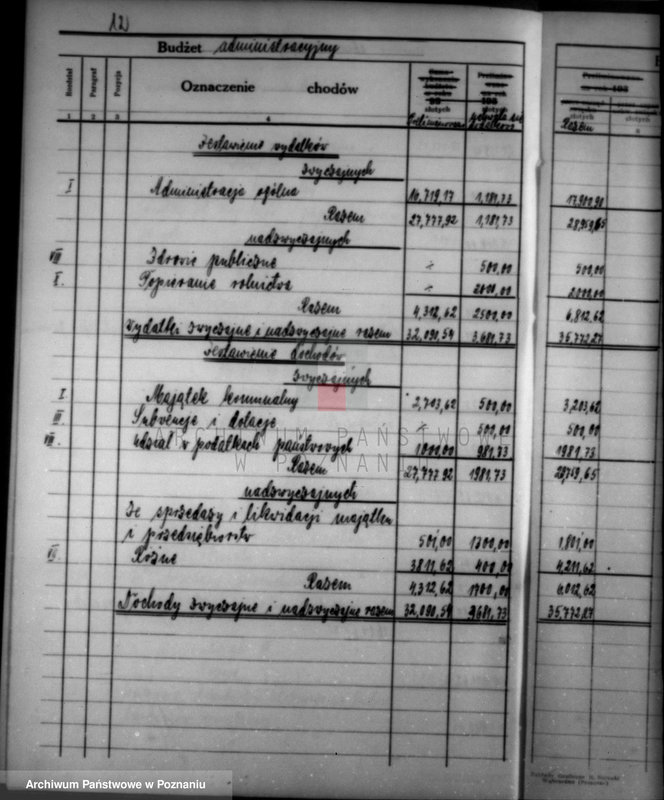 12
Budżet administracyjny
Rozdział Paragraf Pozycja Oznaczenie chodów złotych złotych złotych
1 2 3 4 Razem
Zestawienie wydatków
zwyczajnych
I Administracja ogólna 16.719,17 1.181,73 17.900,90
Razem 27.777,92 1.181,73 28.959,65
nadzwyczajnych
VIII Zdrowie publiczne 500,00 500,00
X. Popieranie rolnictwa 2000,00 2000,00
Razem 4.312,62 2500,00 6.812,62
Wydatki zwyczajne i nadzwyczajne razem 32.090,54 3.681,73 35.772,27
Zestawienie dochodów
zwyczajnych
I. Majątek komunalny 2,703,62 500,00 3,203,62
III. Subwencje i dotacje 500,00 500,00
VII. Udział w podatkach państwowych 1000,00 981,73 1981,73
Razem 27,777,92 1981,73
nadzwyczajnych
Ze sprzedaży i likwidacji majątku
i przedsiębiorstw 501,00 1300,00 1.801,00
VII Różne 3811,62 400,00 4.211,62
Razem 4,312,62 1700,00 6.012,62
Dochody zwyczajne i nadzwyczajne razem 32,090,54 3681,73 35.772,27
ARCHIWUM PAŃSTWOWE
W POZNANIU
Archiwum Państwowe w Poznaniu